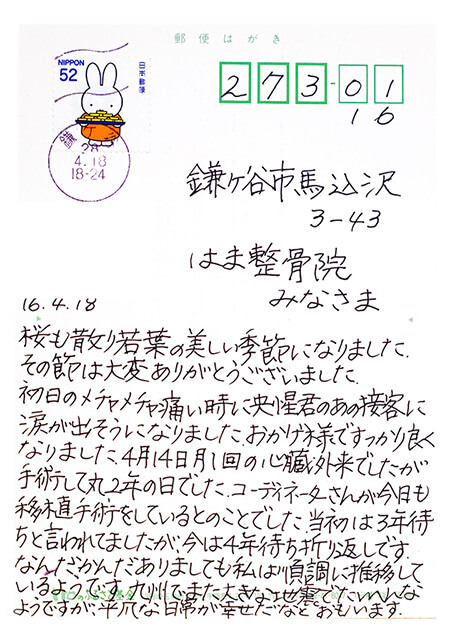 郵便はがき
NIPPON
52
日本郵便
鎌
28
4.18
18-24
273-01
16
鎌ヶ谷市馬込沢
3-43
はま整骨院
みなさま
16.4.18
桜も散り若葉の美しい季節になりました.
その節は大変ありがとうございました.
初日のメチャメチャ痛い時に央惺君のあの接客に
涙が出そうになりました.おかげ様ですっかり良く
なりました.4月14日月1回の心臓外来でしたが
手術して丸2年の日でした.コーディネーターさんが今日も
移植手術をしているとのことでした.当初は3年待
ちと言われてましたが、今は4年待ち折り返しです.
なんだかんだありましても私は順調に推移して
いるようです.九州でまた大きな地震でたいへんな
ようですが、平凡な日常が幸せだなとおもいます.